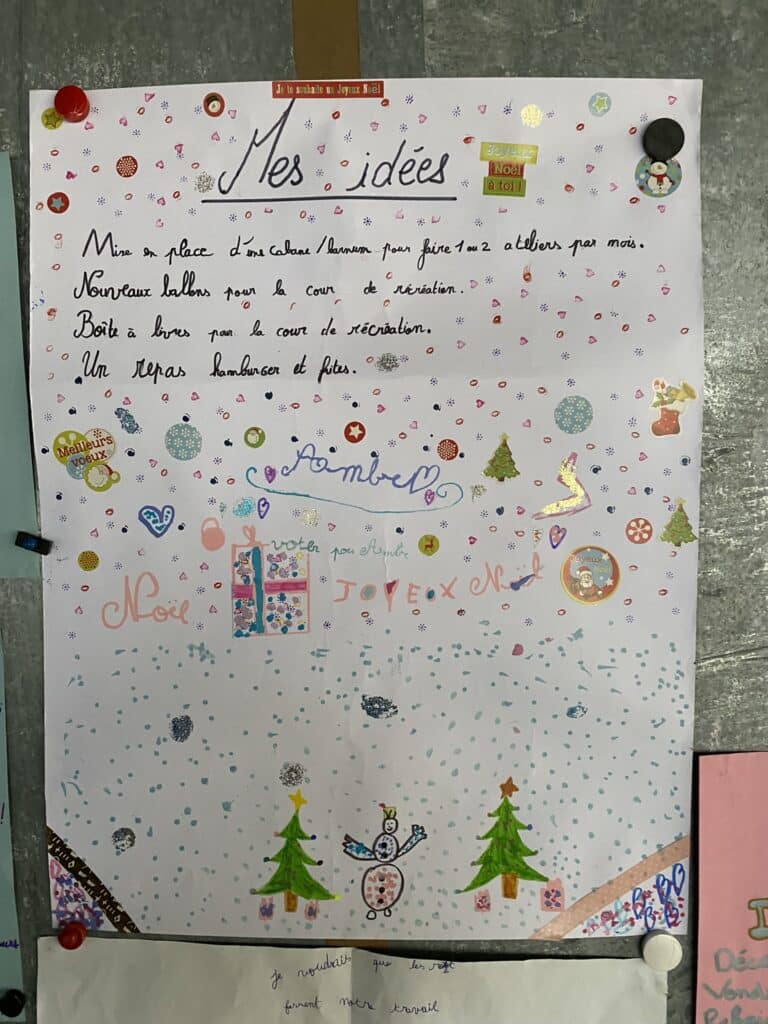 Je te souhaite un Joyeux Noël
Mes idées
Joyeux
Noël
à toi !
Mise en place d'une cabane/barnum pour faire 1 ou 2 ateliers par mois.
Nouveaux ballons pour la cour de récréation.
Boîte à livres pour la cour de récréation.
Un repas hamburger et frites.
Meilleurs
voeux
Ambre
voter pour Ambre
Noël
JOYEUX Noël
Joyeux
je voudrais que les
notre travail
Déco
Vend